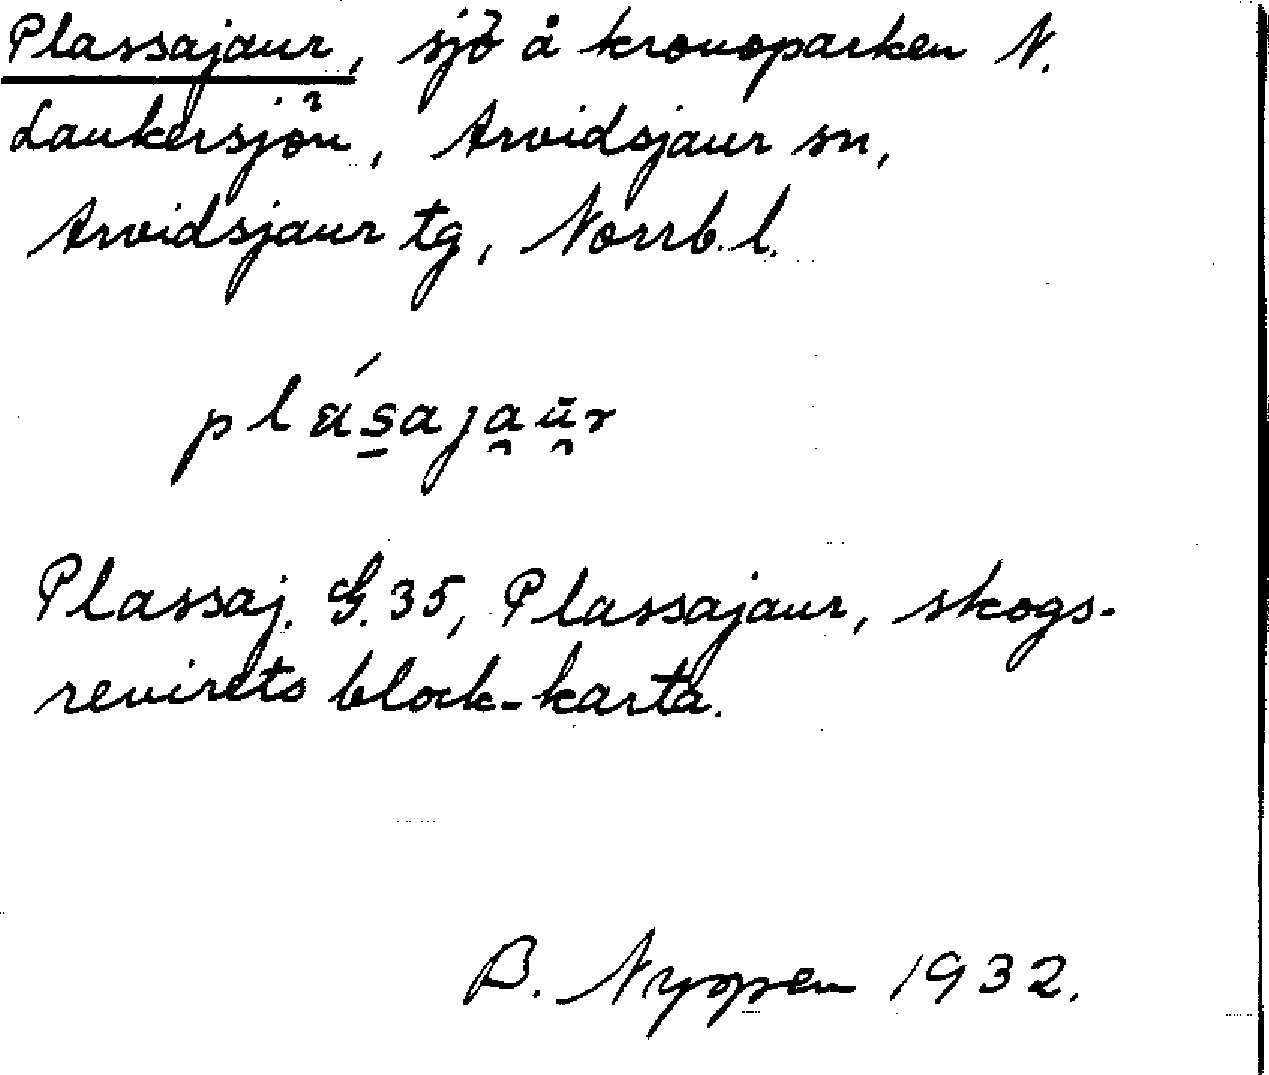 Plassajaur, sjö å kronoparken N.
Laukersjön, Arvidsjaur sn,
Arvidsjaur tg, Norrb. l.
plásajaur
Plassaj. G. 35, Plassajaur, skogs-
revirets block-karta.
B. 1932.